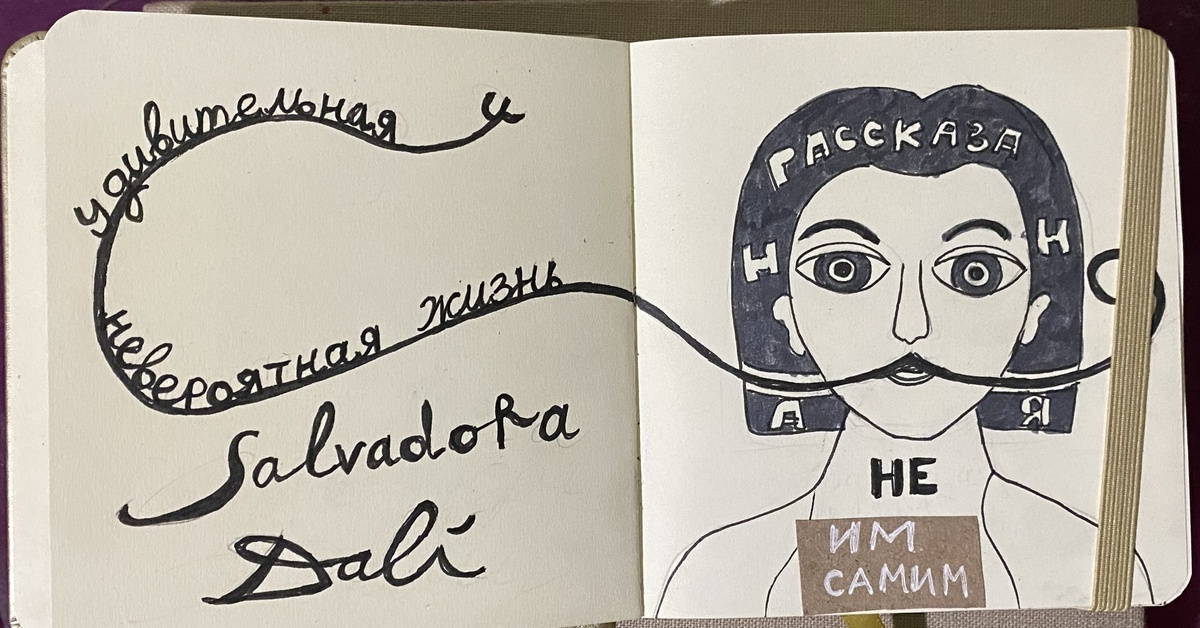 удивительная и
невероятная жизнь
SalvadoRa
Dalí
РАССКАЗА
Н Н
А Я
НЕ
ИМ
САМИМ